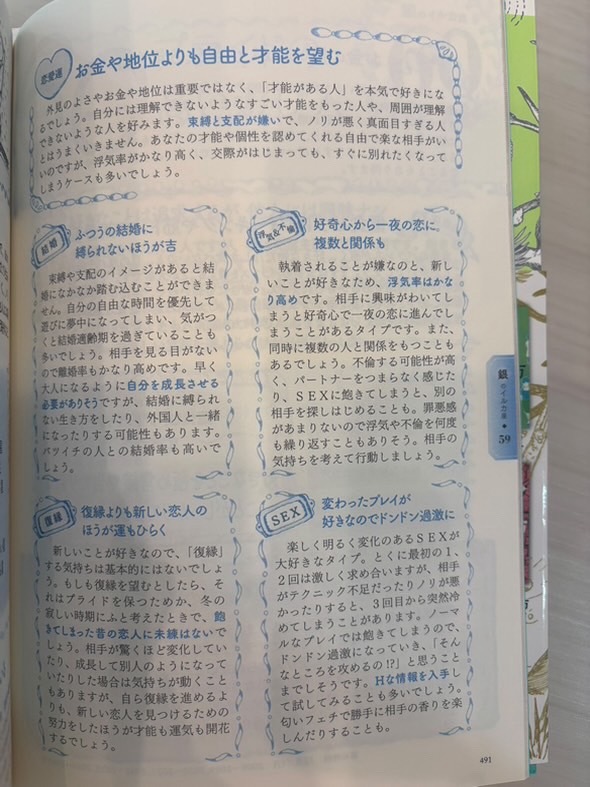 恋愛運
お金や地位よりも自由と才能を望む
外見のよさやお金や地位は重要ではなく、「才能がある人」を本気で好きにな
るでしょう。自分には理解できないようなすごい才能をもった人や、周囲が理解
できないような人を好みます。束縛と支配が嫌いで、ノリが悪く真面目すぎる人
とはうまくいきません。あなたの才能や個性を認めてくれる自由で楽な相手がい
いのですが、浮気率がかなり高く、交際がはじまっても、すぐに別れたくなって
しまうケースも多いでしょう。
結婚
ふつうの結婚に
縛られないほうが吉
束縛や支配のイメージがあると結
婚になかなか踏む込むことができま
せん。自分の自由な時間を優先して
遊びに夢中になってしまい、気がつ
くと結婚適齢期を過ぎていることも
多いでしょう。相手を見る目がない
ので離婚率もかなり高めです。早く
大人になるように自分を成長させる
必要がありそうですが、結婚に縛られ
ない生き方をしたり、外国人と一緒
になったりする可能性もあります。
バツイチの人との結婚率も高いで
しょう。
浮気&不倫
好奇心から一夜の恋に。
複数と関係も
執着されることが嫌なのと、新し
いことが好きなため、浮気率はかな
り高めです。相手に興味がわいてし
まうと好奇心で一夜の恋に進んでし
まうことがあるタイプです。また、
同時に複数の人と関係をもつことも
あるでしょう。不倫する可能性が高
く、パートナーをつまらなく感じた
り、SEXに飽きてしまうと、別の
相手を探しはじめることも。罪悪感
があまりないので浮気や不倫を何度
も繰り返すこともありそう。相手の
気持ちを考えて行動しましょう。
復縁
復縁よりも新しい恋人の
ほうが運もひらく
新しいことが好きなので、「復縁」
する気持ちは基本的にはないでしょ
う。もしも復縁を望むとしたら、そ
れはプライドを保つためか、冬の
寂しい時期にふと考えたときで、飽
きてしまった昔の恋人に未練はないで
しょう。相手が驚くほど変化してい
たり、成長して別人のようになって
いたりした場合は気持ちが動くこと
もありますが、自ら復縁を進めるよ
りも、新しい恋人を見つけるための
努力をしたほうが才能も運気も開花
するでしょう。
SEX
変わったプレイが
好きなのでドンドン過激に
楽しく明るく変化のあるSEXが
大好きなタイプ。とくに最初の1、
2回は激しく求め合いますが、相手
がテクニック不足だったりノリが悪
かったりすると、3回目から突然冷
めてしまうことがあります。ノーマ
ルなプレイでは飽きてしまうので、
ドンドン過激になっていき、「そん
なところを攻めるの!?」と思うこと
までしそうです。Hな情報を入手し
て試してみることも多いでしょう。
匂いフェチで勝手に相手の香りを楽
しんだりすることも。
銀のイルカ座 59
491